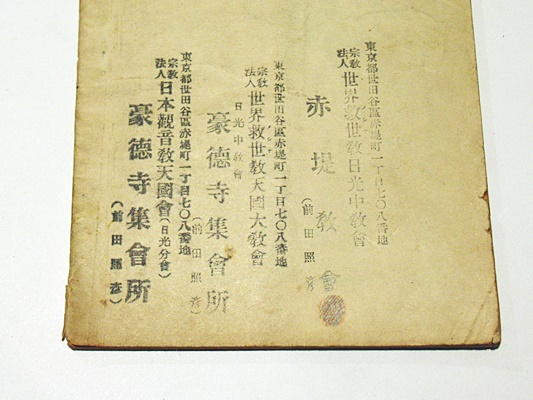 東京都世田谷區赤堤町一丁目七〇八番地
宗敎法人 世界救世敎日光中敎會
赤堤敎會
(前田照彥)
東京都世田谷區赤堤町一丁目七〇八番地
宗敎法人 世界救世敎天國大敎會
日光中敎會
豪德寺集會所
(前田照彥)
東京都世田谷區赤堤町一丁目七〇八番地
宗敎法人 日本觀音敎天國會(日光分會)
豪德寺集會所
(前田照彥)